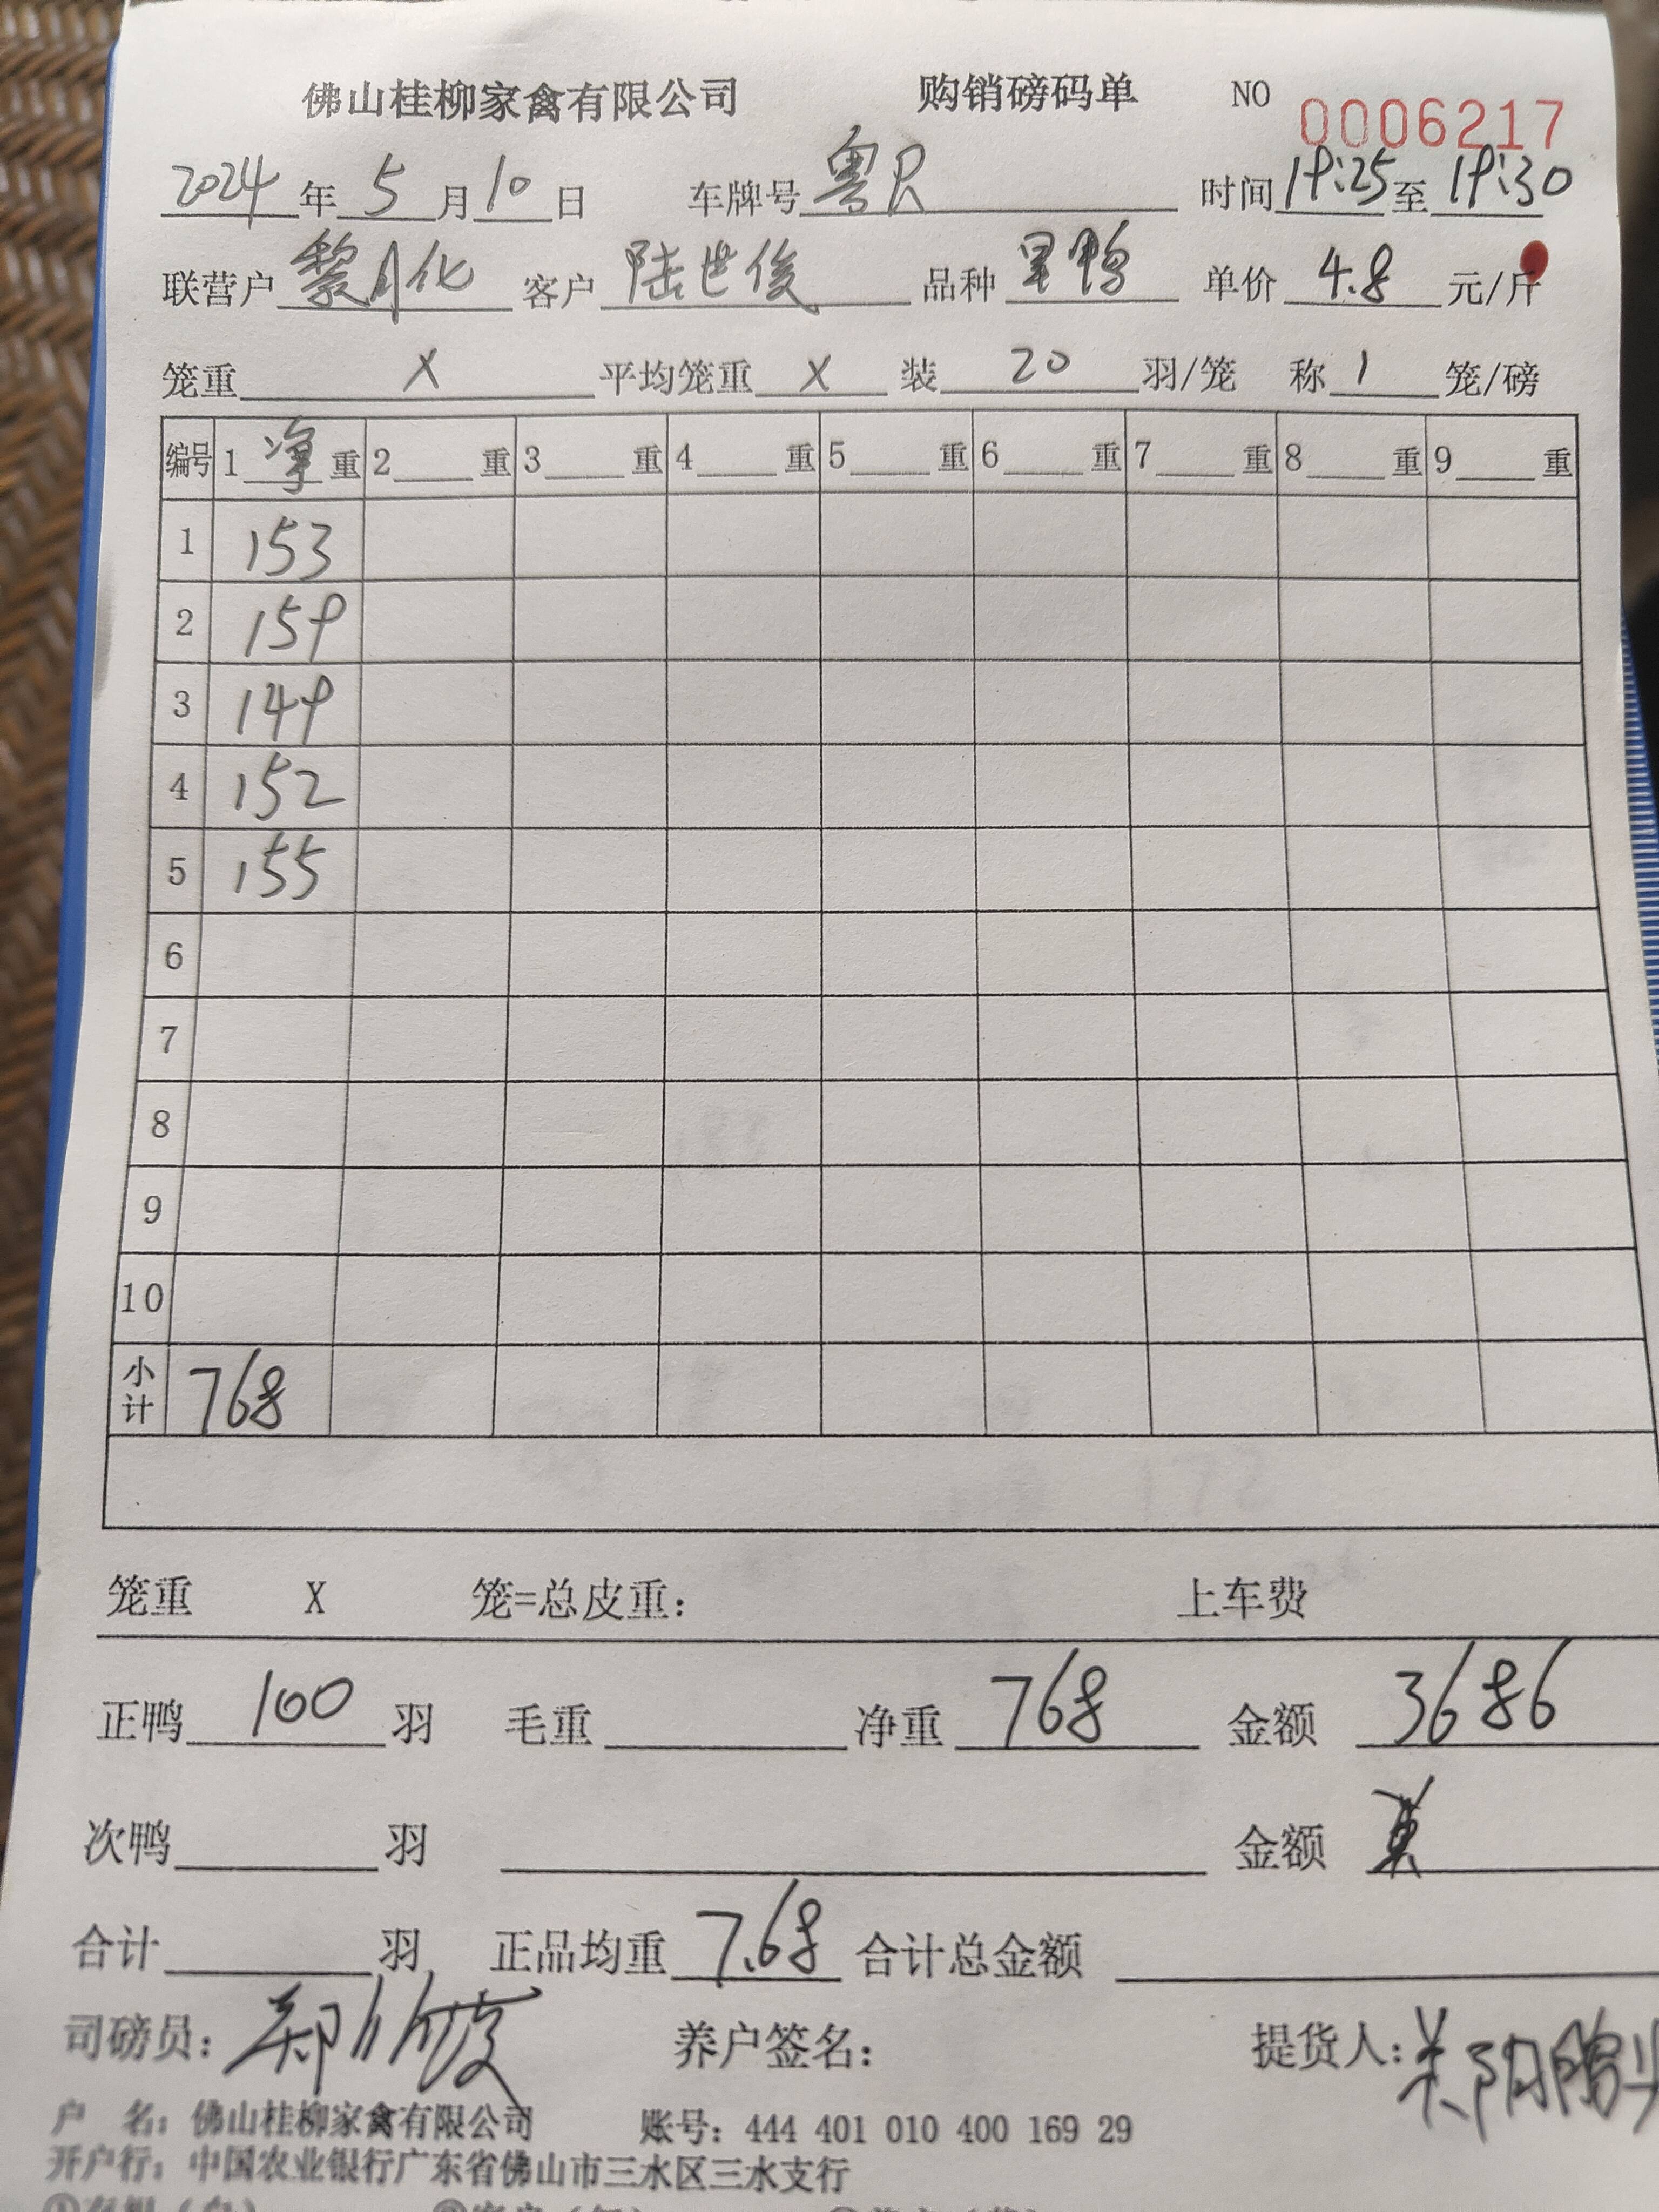 佛山桂柳家禽有限公司 购销磅码单 NO 0006217
2024年5月10日 车牌号 粤R 时间 19:25 至 19:30
联营户 黎月化 客户 陆世俊 品种 单价 4.8 元/斤
笼重 X 平均笼重 X 装 20 羽/笼 称 1 笼/磅
编号 1 净 重 2 重 3 重 4 重 5 重 6 重 7 重 8 重 9 重
1 153
2 159
3 149
4 152
5 155
6
7
8
9
10
小计 768
笼重 X 笼=总皮重: 上车费
正鸭 100 羽 毛重 净重 768 金额 3686
次鸭 羽 金额
合计 羽 正品均重 7.68 合计总金额
司磅员: 养户签名: 提货人:
户 名: 佛山桂柳家禽有限公司 账号: 444 401 010 400 169 29
开户行: 中国农业银行广东省佛山市三水区三水支行